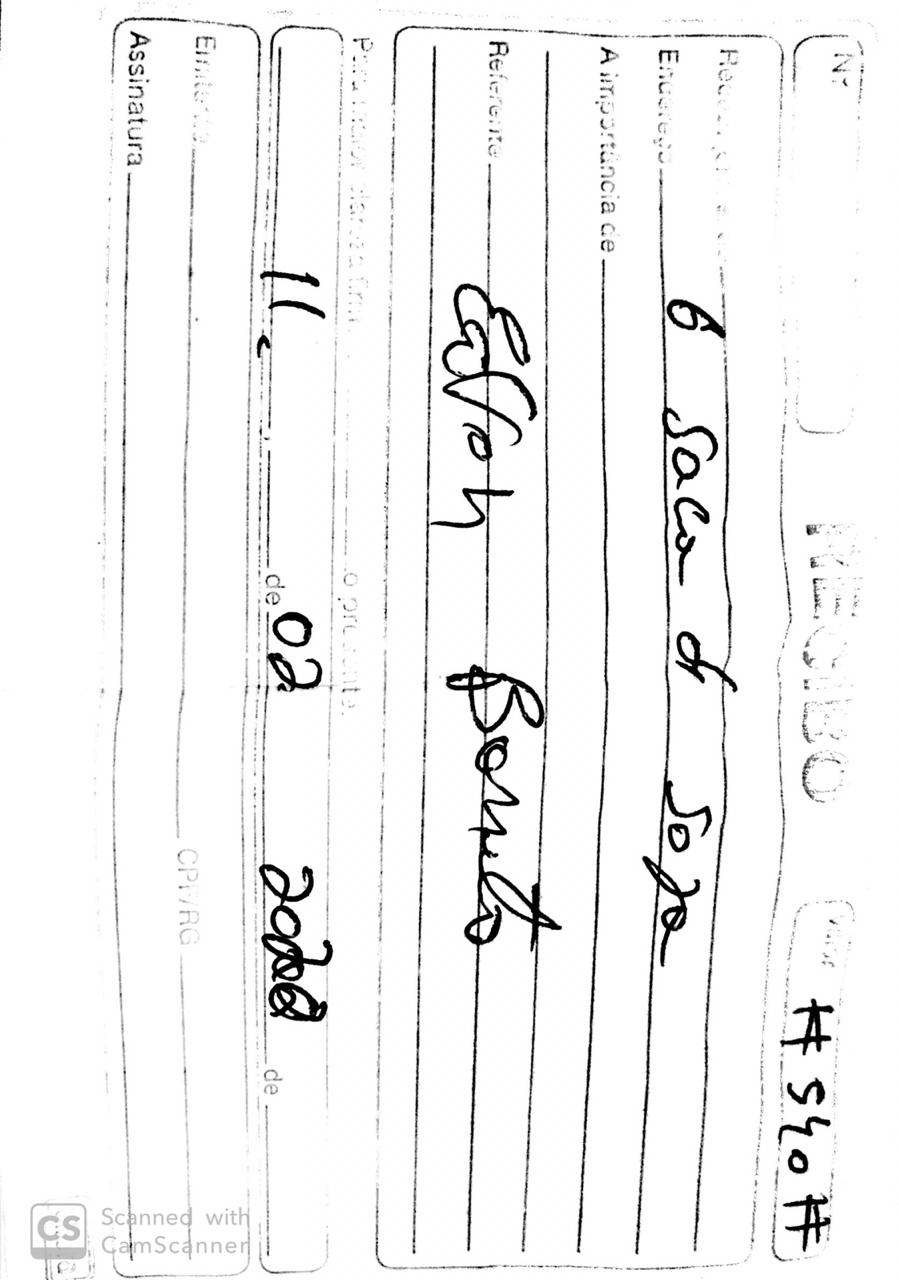 Nº
RECIBO
Valor #540#
Endereço 6 Saca d Soja
A importância de
Referente
Bonito
Para maior clareza firmo o presente.
11 de 02 de
Emitente CPF/RG
Assinatura
Scanned with
CamScanner